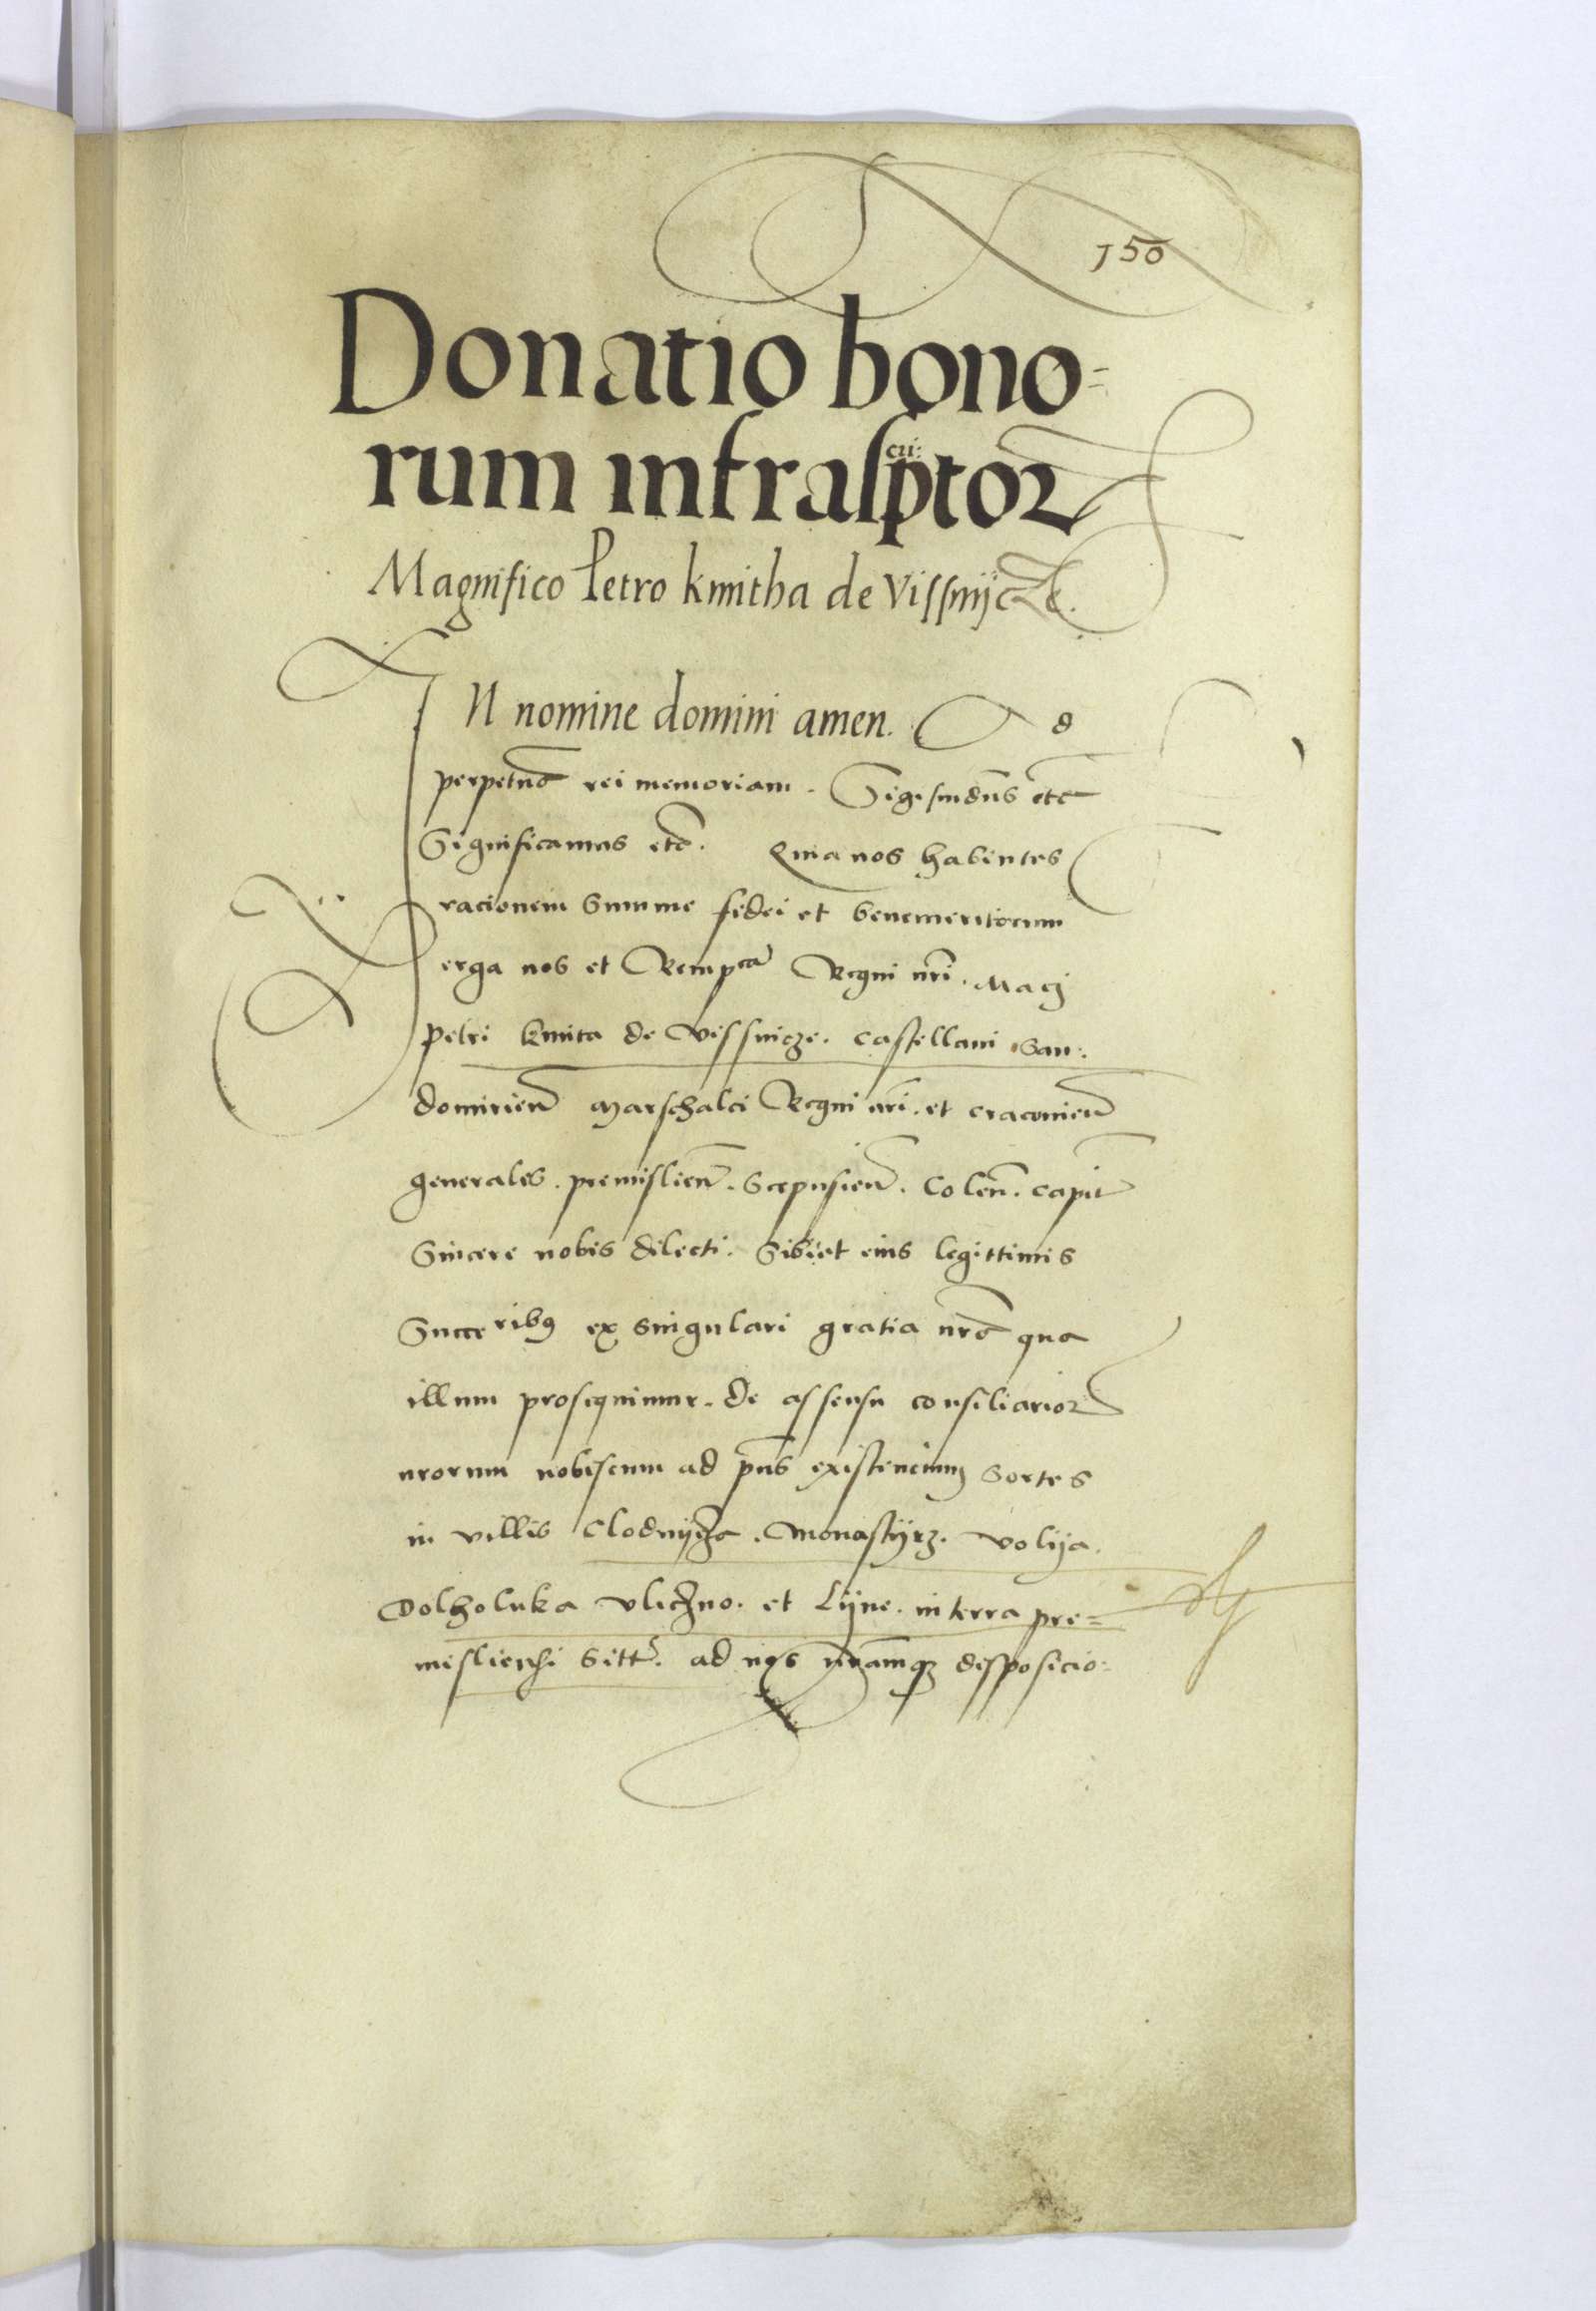 150
Donatio bono=
rum infrasptor
cri:
Magnifico Petro kmitha de Vissnijcze.
IN nomine domini amen. Ad
perpetuã rei memoriam. Sigismdũs etc
Significamus etc. Quia nos habentes
racionem summe fidei et benemeritorum
erga nos et Rempcã Regni nri. Maci
petri kmita de Vissnicze. Castellani San:
domirieñ Marschalci Regni nri. et cracovieñ
generales. premislieñ. Scepusieñ. Coleñ. capit
Sincere nobis dilecti. Sibi et eius legittimis
Succeribus ex singulari gratia nrã qua
illum prosequimur. de assensu consiliarior
nrorum nobiscum ad pñs existencium sortes
in villis Clodnycza. Monastyrz. Volija.
Dolholuka Uliczno. et Lijne. in terra pre=
misliensi Sitt. ad nos nramque disposicio: